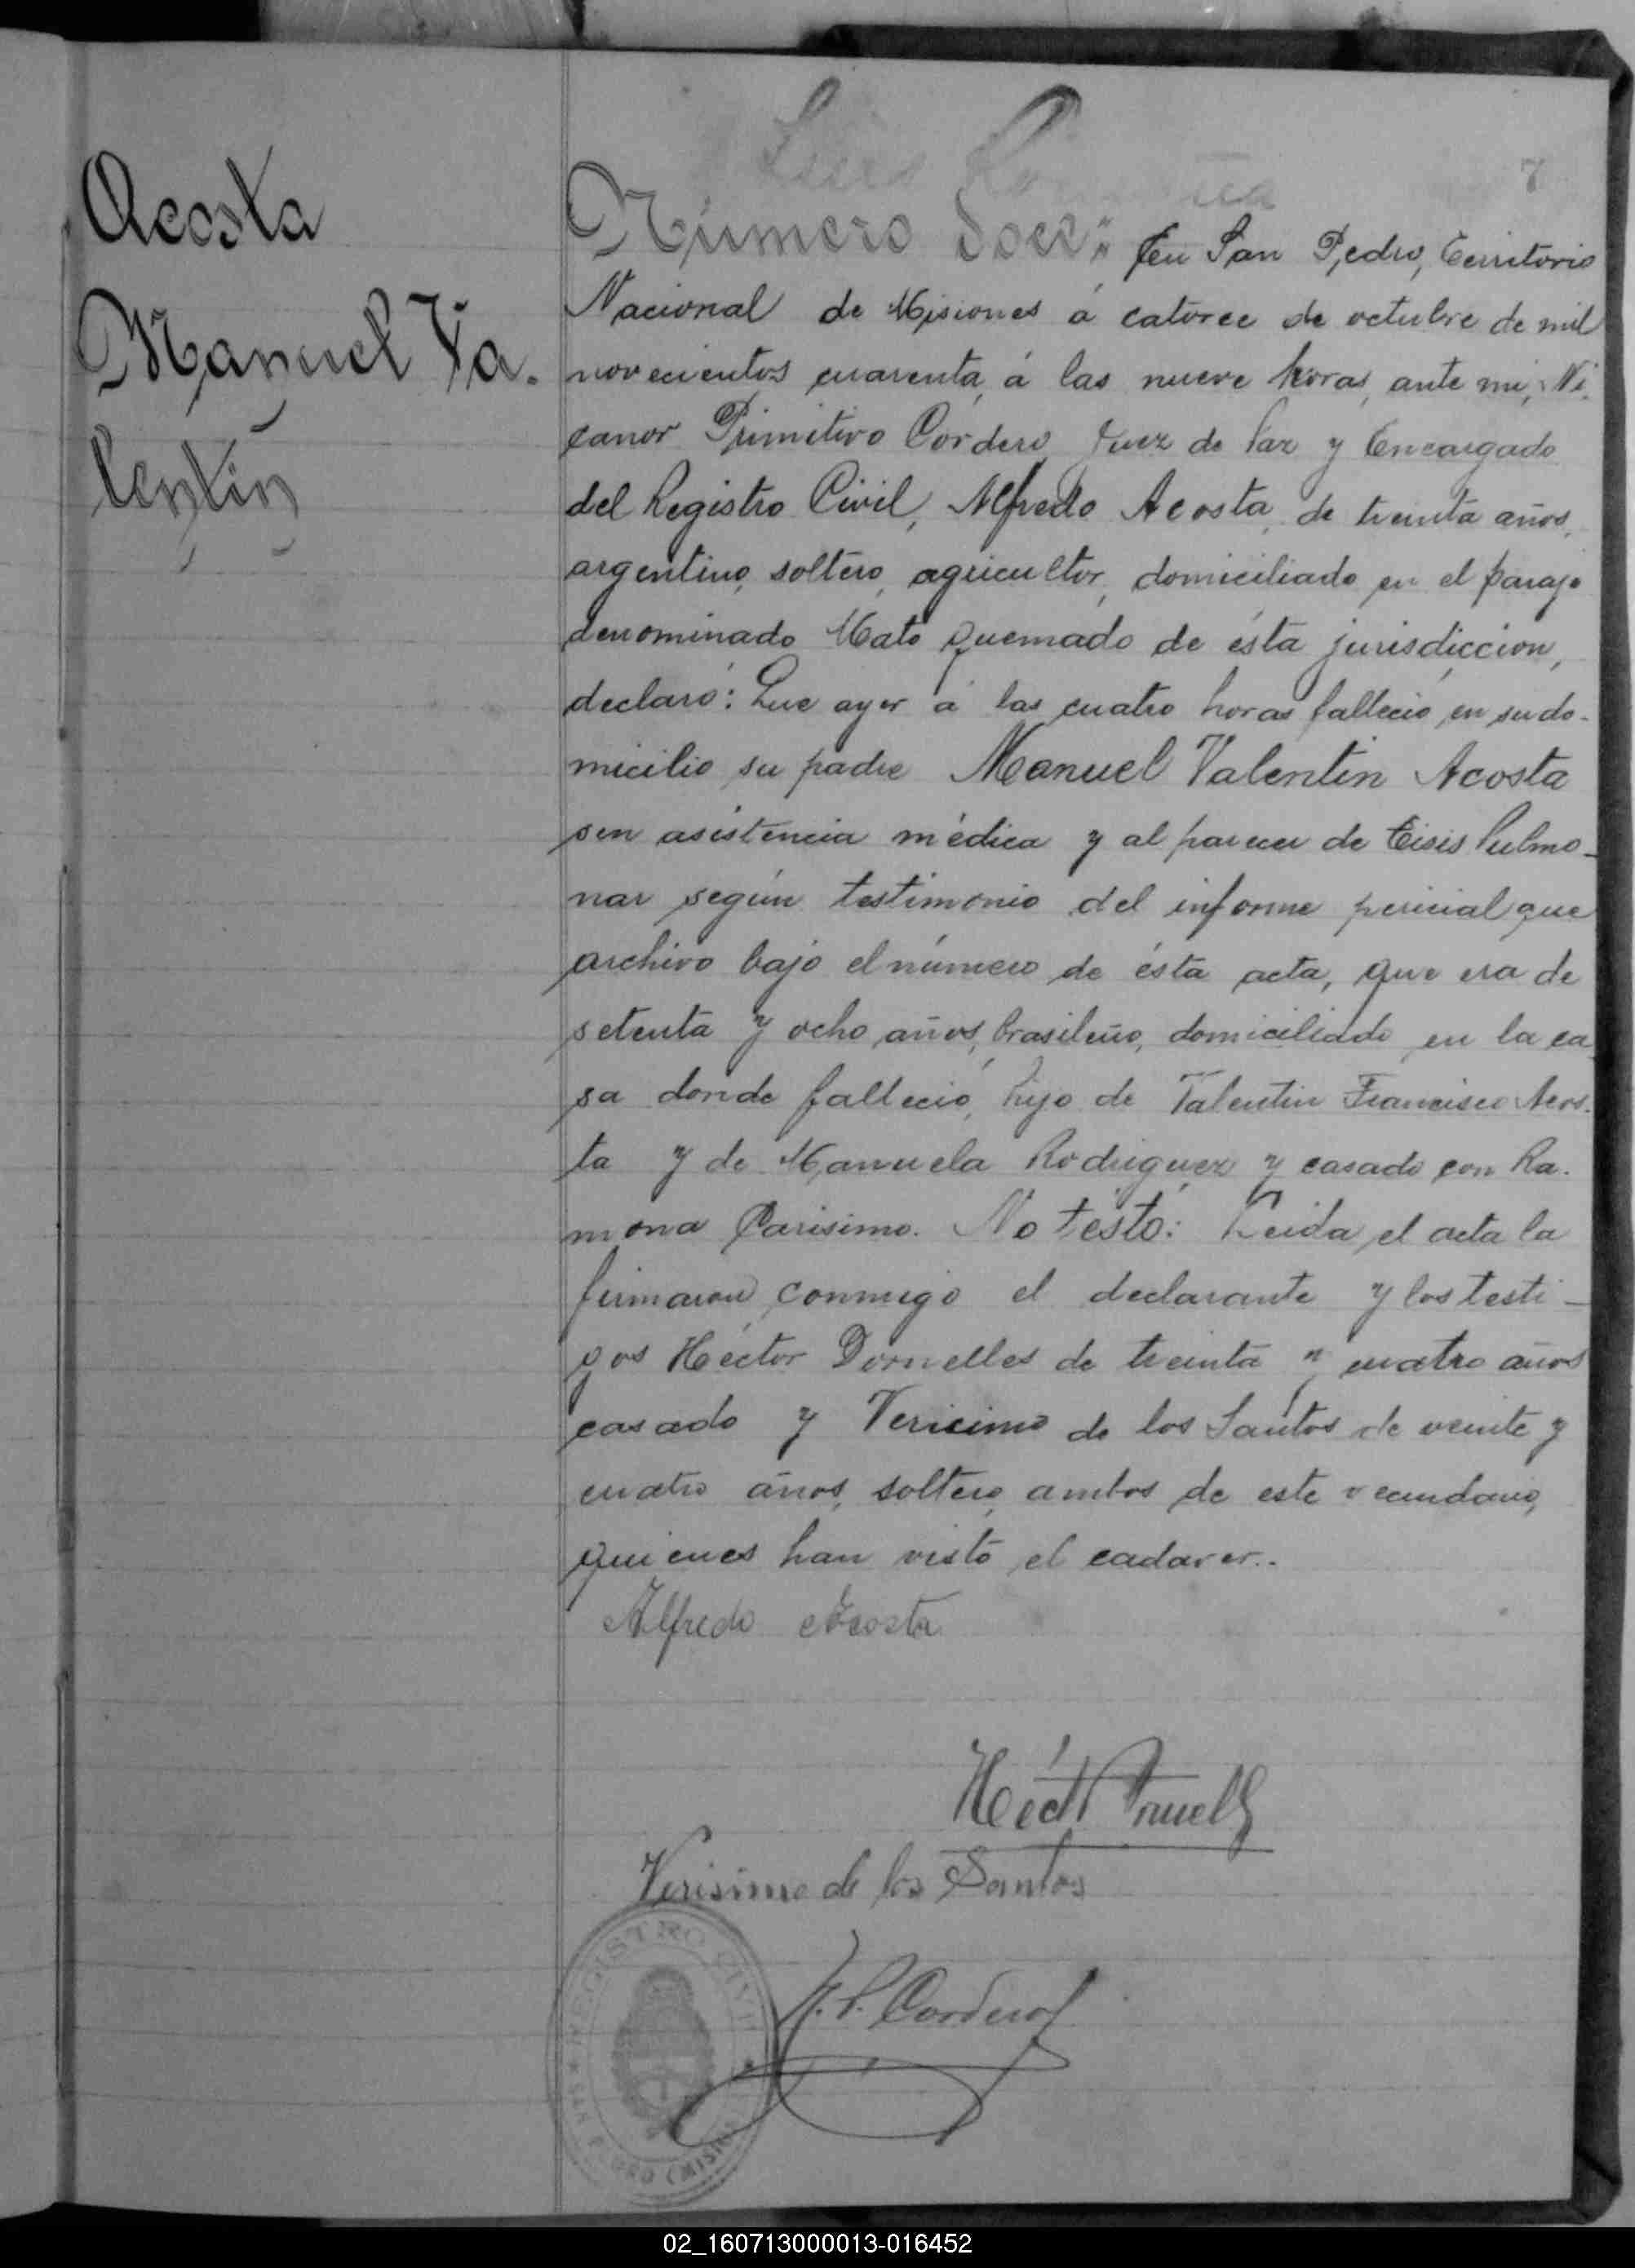 7
Acosta
Manuel Va.
lentin
Número Doce: En San Pedro, Territorio
Nacional de Misiones á catorce de octubre de mil
novecientos cuarenta, á las nueve horas, ante mi, Ni.
canor Primitivo Cordero Juez de Paz y Encargado
del Registro Civil, Alfredo Acosta, de treinta años,
argentino, soltero, agricultor, domiciliado en el paraje
denominado Mato Quemado de ésta jurisdiccion,
declaró: Que ayer á las cuatro horas falleció en su do-
micilio su padre Manuel Valentin Acosta
sin asistencia médica y al parecer de Tisis Pulmo-
nar según testimonio del informe pericial que
archivo bajo el número de ésta acta, que era de
setenta y ocho años, brasileño, domiciliado en la ca
sa donde falleció, hijo de Valentin Francisco Acos.
ta y de Manuela Rodriguez y casado con Ra.
mona Parisimo. No testó: Leida el acta la
firmaron conmigo el declarante y los testi-
gos Héctor Dornelles de treinta y cuatro años
casado y Vericimo de los Santos de veinte y
cuatro años, soltero, ambos de este vecindario,
quienes han visto el cadaver..
Alfredo Acosta
Héct Dornells
Verisimo de los Santos
N. P. Cordero
REGISTRO CIVIL
SAN PEDRO (MISIONES)
02_160713000013-016452